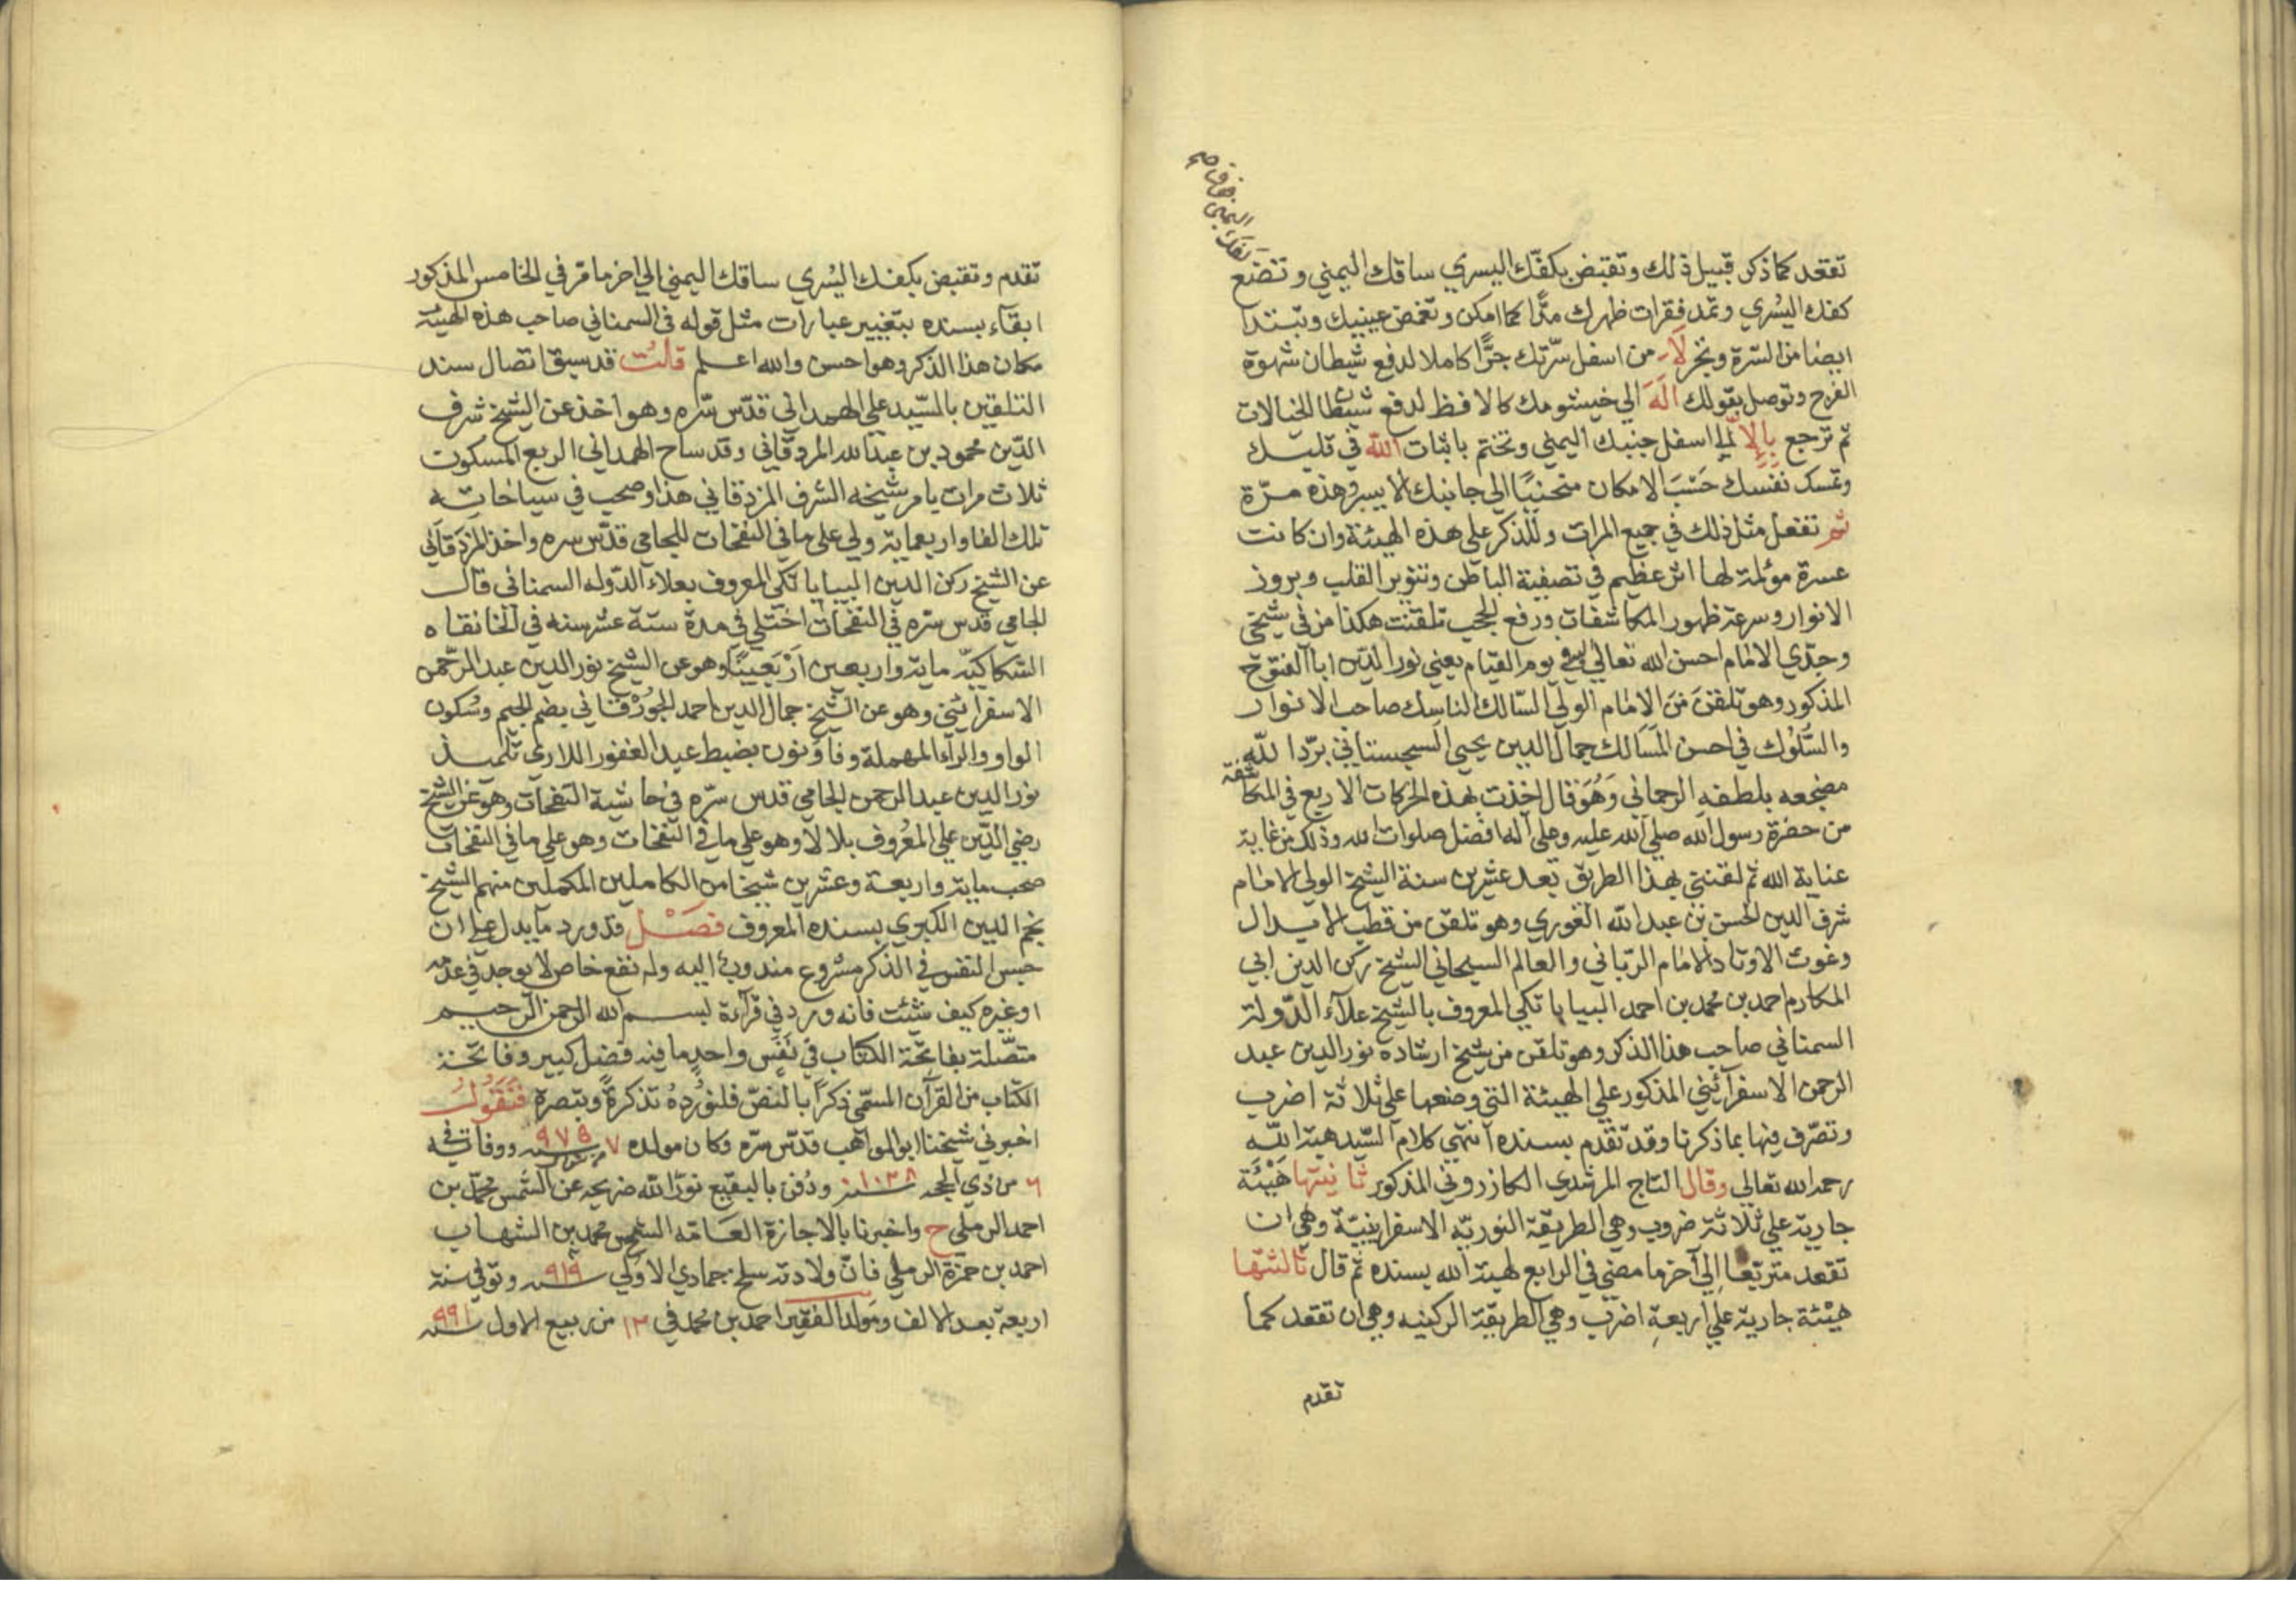 تقعد كما ذكر قبيل ذلك وتقبض بكفّك اليسري ساقك اليمني وتضع
كفك اليسري وتمد فقرات ظهرك متًّا كما امكن وتغمض عينيك وتبتدا
ايضا من السّرة وتجر لَا من اسفل سرّتك جرًّا كاملا لدفع شيطان شهوة
الفرج وتوصل بقولك الَهَ الي خيشومك كالافظ لدفع شيطان الخيالات
ثم ترجع بالِاَّ الي اسفل جنبك اليمني وتختم باثبات الله في قلبك
وتمسك نفَسك حَسْبَ الامكان منحنيًا الي جانبك الايسر وهذه مرّة
ثم تفعل مثل ذلك في جميع المرات وللذكر علي هذه الهيئة وان كانت
عسرة مؤلمة لها اثر عظيم في تصفية الباطن وتنوير القلب وبروز
الانوار وسرعة ظهور المكاشفات ورفع الحجب تلقنت هكذا من في شيخي
وجدّي الامام احسن الله تعالي اليه في يوم القيام يعني نور الدين ابا الفتوح
المذكور وهو تلقن من الامام الولي السّالك الناسك صاحب الانوار
والسّلوك في احسن المسَالك جمال الدين يحيي السجستاني برّد الله
مضجعه بلطفه الرحماني وَهُوَ قال اخذت هذه الحركات الاربع في المكاشفة
من حضرة رسول الله صلي الله عليه وعلي آله افضل صلوات الله وذلك من غاية
عناية الله ثم لقنني بهذا الطريق بعد عشرين سنة الشيخ الولي الامام
شرف الدين الحسن بن عبد الله الغوري وهو تلقن من قطب الابدال
وغوث الاوتاد الامام الربّاني والعالم السبحاني الشيخ ركن الدين ابي
المكارم احمد بن محمد بن احمد البيابانكي المعروف بالشيخ علآء الدّولة
السمناني صاحب هذا الذكر وهو تلقن من شيخ ارشاده نور الدين عبد
الرحمن الاسفرآئيني المذكور علي الهيئة التي وضعها علي ثلاثة اضرب
وتصرّف فيها بما ذكرنا وقد تقدم بسنده انتهي كلام السّيد هبة الله
رحمه الله تعالي وقال التاج المرشدي الكازروني المذكور ثانيتها هَيْئَة
جارية علي ثلاثة ضروب وهي الطريقة النوريّه الاسفراينيّة وهي ان
تقعد متربّعا الي آخر ما مضي في الرابع لهبة الله بسنده ثم قال ثالثتها
هيْئة جارية علي اربعةِ اضرب وهي الطريقة الركنيه وهي ان تقعد كما
تقدم
تقدم وتقبض بكفك اليُسري ساقك اليمني الي اخر ما مرّ في الخامس المذكور
ابقاء بسنده بتغيير عبارات مثل قوله في السمناني صاحب هذه الهيئة
مكان هذا الذكر وهو احسن والله اعلم قالتُ قد سبق اتصال سند
التلقين بالسّيد علي الهمداني قدّس سّره وهو اخذ عن الشيخ شرف
الدّين محمود بن عبد الله المزدقاني وقد ساح الهمداني الربع المسكون
ثلاث مرات بامر شيخه الشرف المزدقاني هذا وصحب في سياحاته
تلك الفا واربعماية ولي علي ما في النفحات للجامي قدّس سره واخذ المزدقاني
عن الشيخ ركن الدين البيابانكي المعروف بعلاء الدّوله السمناني قال
الجامي قدس سّره في النفحات اختلي في مدة ستة عشر سنه في الخانقاه
السّكاكيّه ماية واربعين اربعينًا وهو عن الشيخ نور الدين عبد الرّحمن
الاسفرائني وهو عن الشيخ جمال الدين احمد الجوْرْفاني بضم الجيم وسُكون
الواو والرآء المهملة وفآء ونون بضبط عبد الغفور اللاري تلميذ
نور الدين عبد الرحمن الجامي قدس سرّه في حاشية النفحات وهو عن الشيخ
رضي الدّين علي المعْروف بلالا وهو علي ما في النفحات وهو علي ما في النفحات
صحب ماية واربعة وعشرين شيخا من الكاملين المكملين منهم الشيخ
نجم الدين الكبري بسنده المعروف فصْل قد ورد ما يدل علي ان
حبس النفس في الذكر مشروع مندوب اليه وله نفع خاص لا يوجد في عدمه
اوغيره كيف شئت فانه ورد في قرآءة بسم الله الرحمن الرحيم
متصّلة بفاتحة الكتاب في نَفَس واحدٍ ما فيه فضل كبير وفاتحة
الكتاب من القرآن المسمّي ذكرًا بالنصّ فلنورُدهُ تذكرةً وتبصرة فَنَقُولُ
اخبرني شيخنا ابو المواهب قدّس سرّه وكان مولده ٧ شوال سنه ٩٧٥ ووفاته في
٦ من ذي الحجه سنة ١٠٣٨ ودُفن بالبقيع نوّر الله ضريحه عن الشّمس محمّد بن
احمد الرملي ح واخبرنا بالاجازة العَامّه الشمس محمد بن الشهاب
احمد بن حمزة الرملي فانّ ولادته سلخ جمادي الاولي سنه ٩١٩ وتوفي سنة
اربعة بعد الالف ومَولد الفقير احمد بن محمد في ١٢ من ربيع الاول سنه ٩٩١